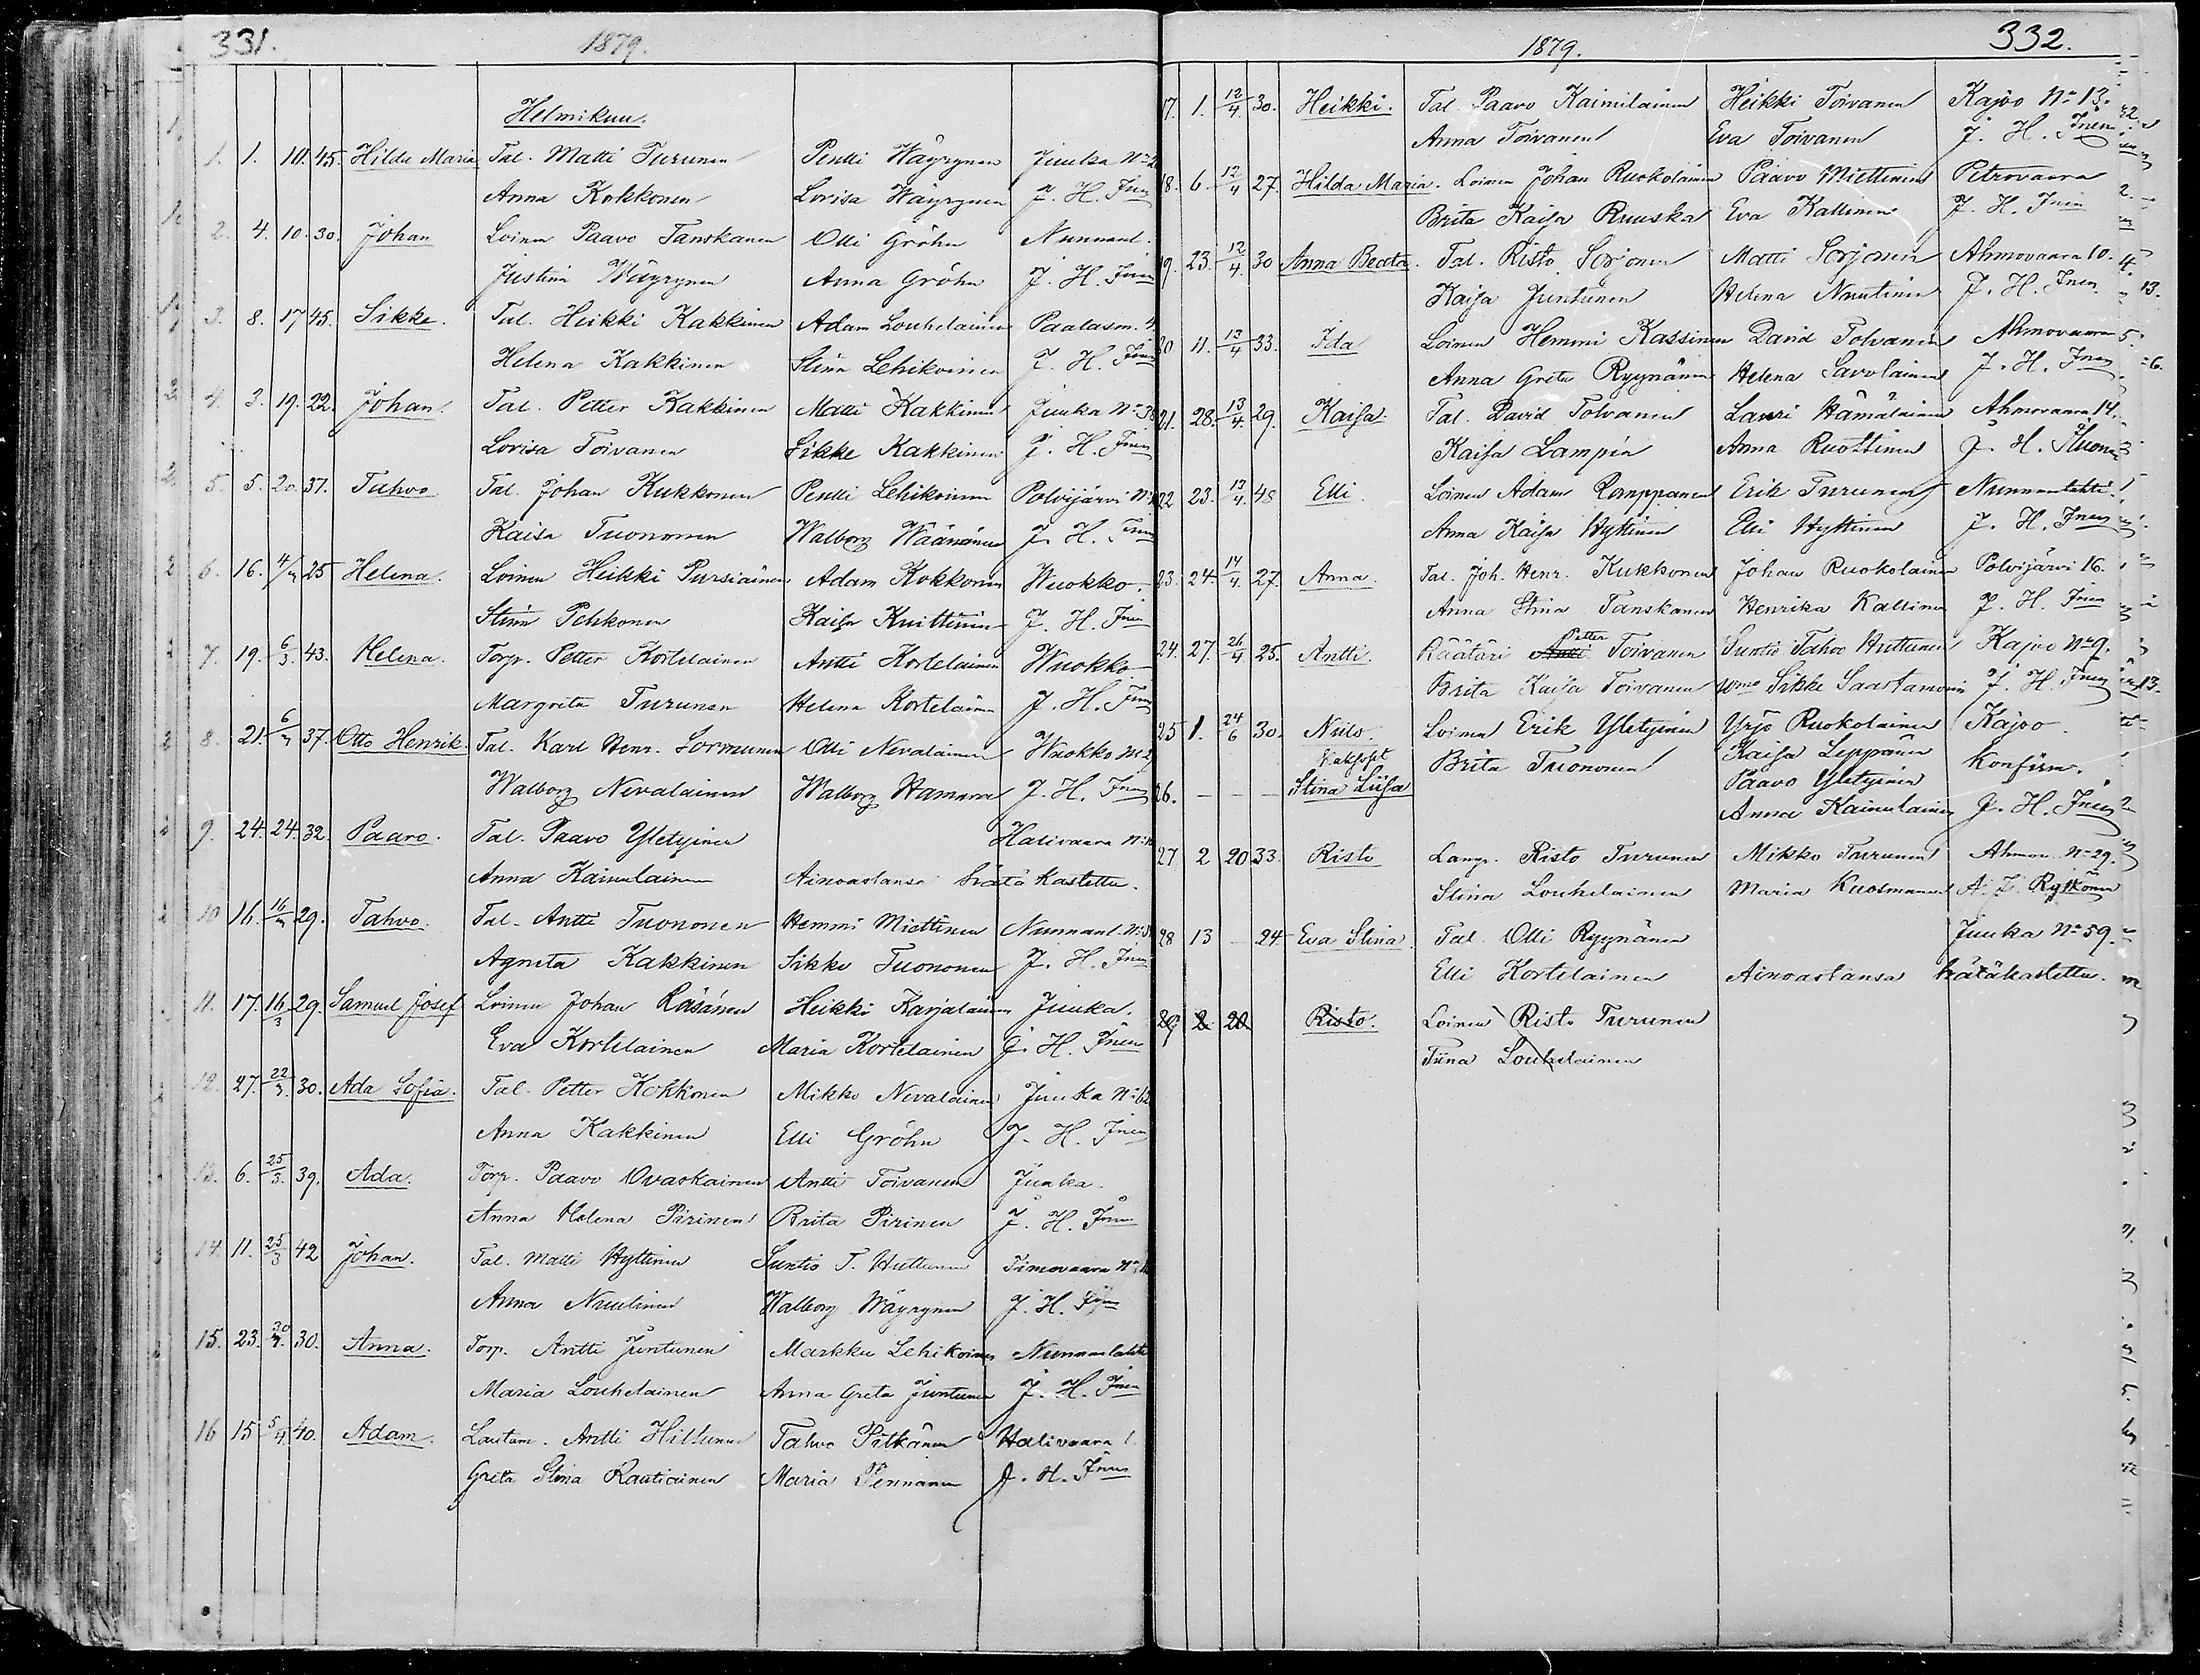 331.
1879.
Helmikuu.
1. 1. 10. 45. Hilda Maria Tal. Matti Turunen Pentti Wäyrynen Juuka No 2
Anna Kokkonen Lovisa Wäyrynen J. H. Inen
2. 4. 10. 30. Johan Loinen Paavo Tanskanen Olli Gröhn Nunnanl.
Justina Wäyrynen Anna Gröhn J. H. Inen
3. 8. 17 45. Sikke. Tal. Heikki Kakkinen Adam Louhelainen Paalasm. 4.
Helena Kakkinen Stina Lehikoinen J. H. Inen
4. 3. 19. 22. Johan. Tal. Petter Kakkinen Matti Kakkinen Juuka No 38
Lovisa Toivanen Sikke Kakkinen J. H. Inen
5. 5. 20. 37. Tahvo Tal. Johan Kukkonen Pentti Lehikoinen Polvijärvi No
Kaisa Tuononen Walborg Wäänänen J. H. Inen
6. 16. 4/3 25 Helena. Loinen Heikki Pursiainen Adam Kokkonen Wuokko.
Stina Pehkonen Kaisa Knuttinen J. H. Inen
7. 19. 6/3. 43. Helena. Torp. Petter Kortelainen Antti Kortelainen Wuokko
Margreta Turunen Helena Kortelainen J. H. Inen
8. 21. 6/3 37. Otto Henrik. Tal. Karl Henr. Sormunen Olli Nevalainen Wuokko No 2
Walborg Nevalainen Walborg Hamara J. H. Inen
9. 24. 24. 32. Paavo. Tal. Paavo Yletyinen Halivaara No
Anna Kainulainen Ainoastansa hätä kastettu.
10 16. 16/3 29. Tahvo. Tal. Antti Tuononen Hemmi Miettinen Nunnanl. No
Agneta Kakkinen Sikke Tuononen J. H. Inen
11. 17. 16/3 29. Samuel Josef Loinen Johan Räsänen Heikki Karjalainen Juuka.
Eva Kortelainen Maria Kortelainen J. H. Inen
12. 27. 22/3. 30. Ada Sofia. Tal. Petter Kokkonen Mikko Nevalainen Juuka No 62
Anna Kakkinen Elli Gröhn J. H. Inen
13. 6. 25/3. 39. Ada. Torp. Paavo Ovaskainen Antti Toivanen Juuka.
Anna Helena Pirinen Brita Pirinen J. H. Inen
14. 11. 25/3 42 Johan. Tal. Matti Hyttinen Suntio T. Huttunen Timovaara No
Anna Nuutinen Walborg Wäyrynen J. H. Inen
15. 23. 30/3. 30. Anna. Torp. Antti Juntunen Markku Lehikoinen Nunnanlahti
Maria Louhelainen Anna Greta Juntunen J. H. Inen
16 15 5/4. 40. Adam. Lautam. Antti Hiltunen Tahvo Pitkänen Halivaara 1.
Greta Stina Raatiainen Maria Pennanen J. H. Inen
332.
1879.
17. 1. 12/4. 30. Heikki. Tal. Paavo Kainulainen Heikki Toivanen Kajoo No 13.
Anna Toivanen Eva Toivanen J. H. Inen
18. 6. 12/4 27. Hilda Maria. Loinen Johan Ruokolainen Paavo Miettinen Petrovaara
Brita Kaisa Ruuska Eva Kallinen J. H. Inen
19. 23. 12/4. 30 Anna Beata. Tal. Risto Sorjonen Matti Sorjonen Ahmovaara 10.
Kaisa Juntunen Helena Nuutinen J. H. Inen
20 11. 13/4 33. Ida Loinen Hemmi Kassinen David Tolvanen Ahmovaara
Anna Greta Ryynänen Helena Savolainen J. H. Inen
21. 28. 13/4. 29. Kaisa. Tal. David Tolvanen Lauri Hämäläinen Ahmovaara 14.
Kaisa Lampin Anna Ruottinen J. H.
22 23. 13/4. 48 Elli. Loinen Adam Romppanen Erik Turunen Nunnanlahti.
Anna Kaisa Hyttinen Elli Hyttinen J. H. Inen
23. 24. 14/4. 27. Anna. Tal. Joh. Henr. Kukkonen Johan Ruokolainen Polvijärvi 16.
Anna Stina Tanskanen Henrika Kallinen J. H. Inen
Petter
24. 27. 26/4 25. Antti. Räätäri Antti Toivanen Suntio Tahvo Huttunen Kajoo No 9.
Brita Kaisa Toivanen Wmo Sikke Saastamoinen J. H. Inen
25 1. 24/6 30. Niilo Loinen Erik Yletyinen Yrjö Ruokolainen Kajoo
Kaksoset Brita Tuononen Kaisa Leppänen Konfirm.
26. – – – Stina Liisa Paavo Yletyinen
Anna Kainulainen J. H. Inen
27 2 20 33. Risto Lamp. Risto Turunen Mikko Turunen Ahmov. No 29.
Stina Louhelainen Maria Kuosmanen A. J. Rytkönen
28 13 – 24 Eva Stina. Tal. Olli Ryynänen Juuka No 59.
Elli Kortelainen Ainoastansa hätäkastettu.
29. 2. 20 Risto. Loinen Risto Turunen
Tiina Louhelainen